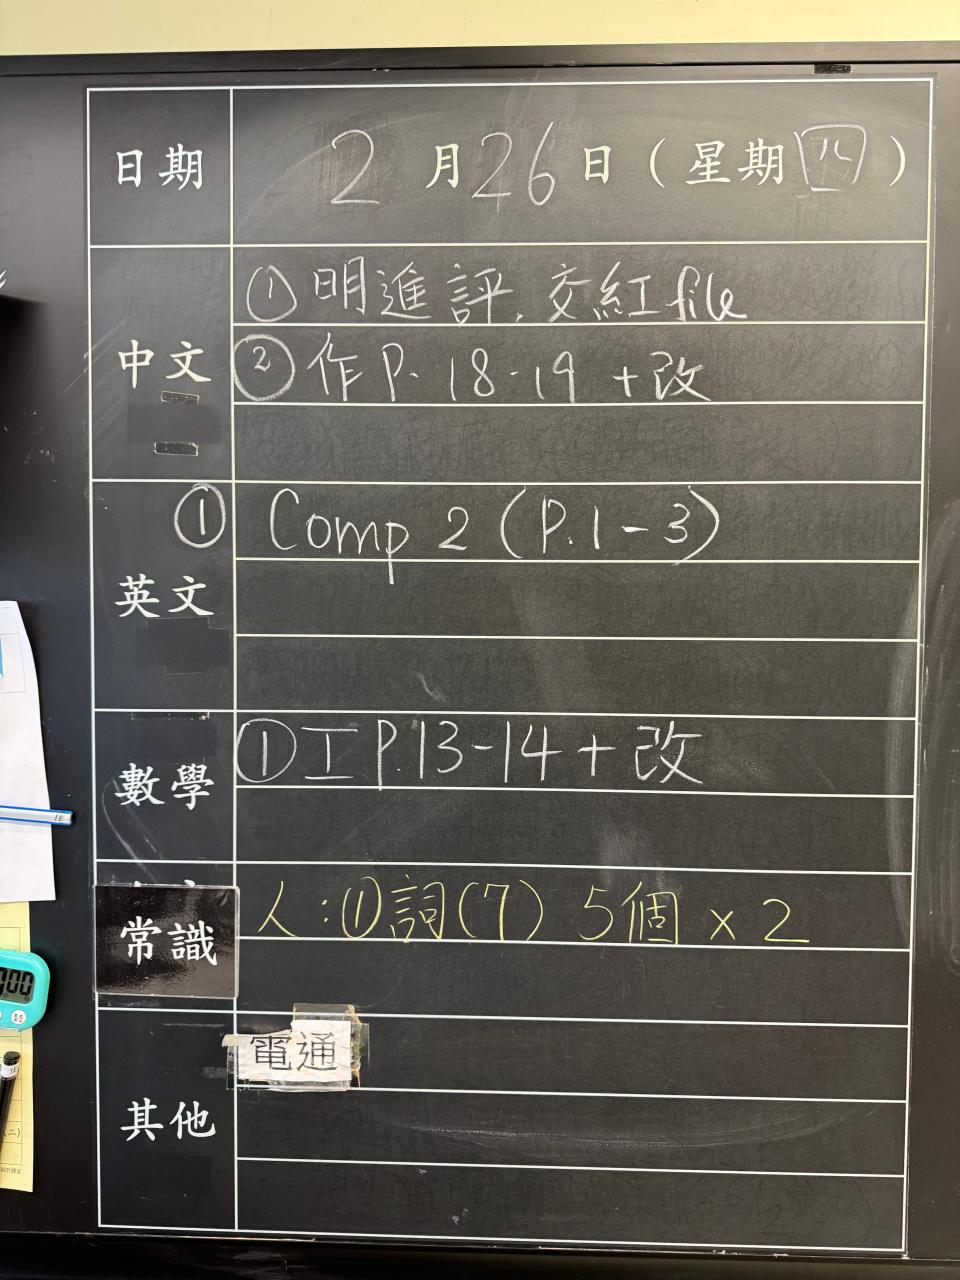 日期 2月26日（星期四）
中文
①明進評,交紅file
②作P.18-19+改
英文
①Comp 2 (P.1-3)
數學
①工P.13-14+改
常識
人:①詞(7) 5個x2
其他
電通
1E